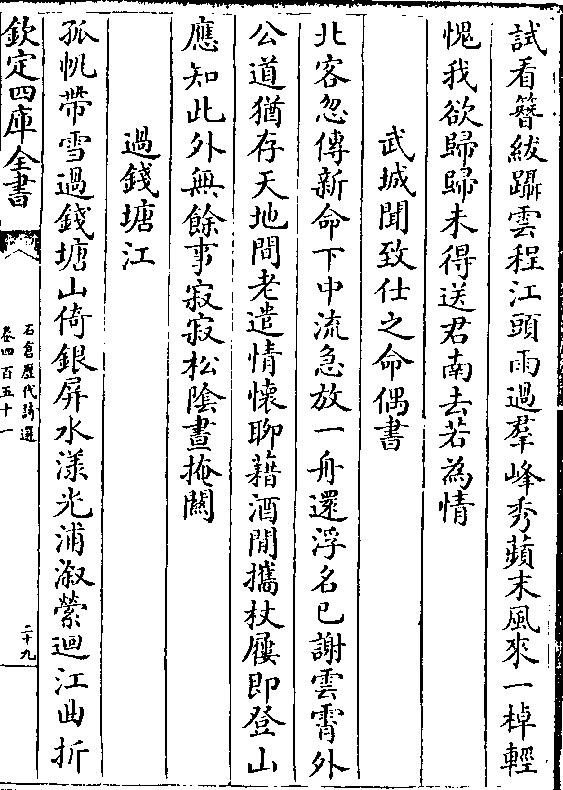 試看簪紱躡雲程江頭雨過羣峰秀蘋末風來一棹輕
愧我欲歸歸未得送君南去若為情
武城聞致仕之命偶書
北客忽傳新命下中流急放一舟還浮名已謝雲霄外
公道猶存天地間老遣情懷聊藉酒閒攜杖屨即登山
應知此外無餘事寂寂松隂晝掩關
過錢塘江
孤帆帶雪過錢塘山倚銀屏水漾光浦溆縈迴江曲折
欽定四庫全書
石倉歷代詩選
卷四百五十一
二十九